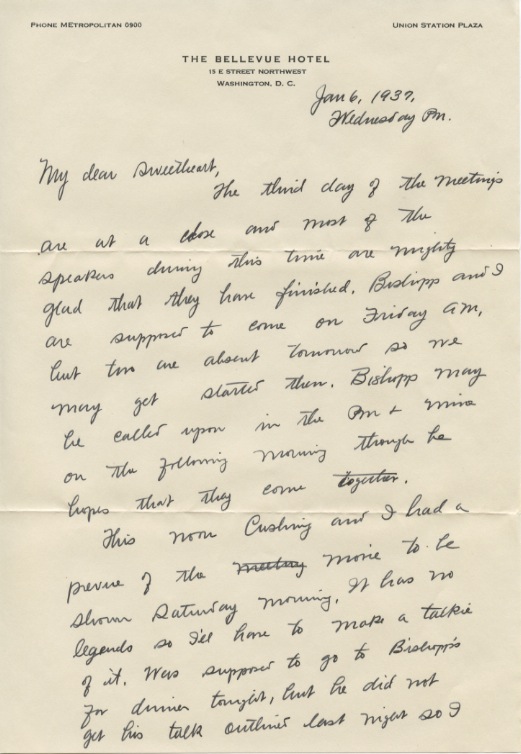 PHONE METROPOLITAN 0900
UNION STATION PLAZA
THE BELLEVUE HOTEL
15 E STREET NORTHWEST
WASHINGTON, D. C.
Jan 6, 1937,
Wednesday Pm.
My dear Sweetheart,
The third day of the meetings
are at a close and most of the
speakers during this time are mighty
glad that they have finished. Bishopp and I
are supposed to come on Friday am,
but two are absent tomorrow so we
may get started then. Bishopp may
be called upon in the Pm & mine
on the following morning though he
hopes that they come together.
This noon Cushing and I had a
prevue of the meeting movie to be
shown Saturday morning. It has no
legends so I'll have to make a talkie
of it. Was supposed to go to Bishopp's
for dinner tonight, but he did not
get his talk outlined last night so I